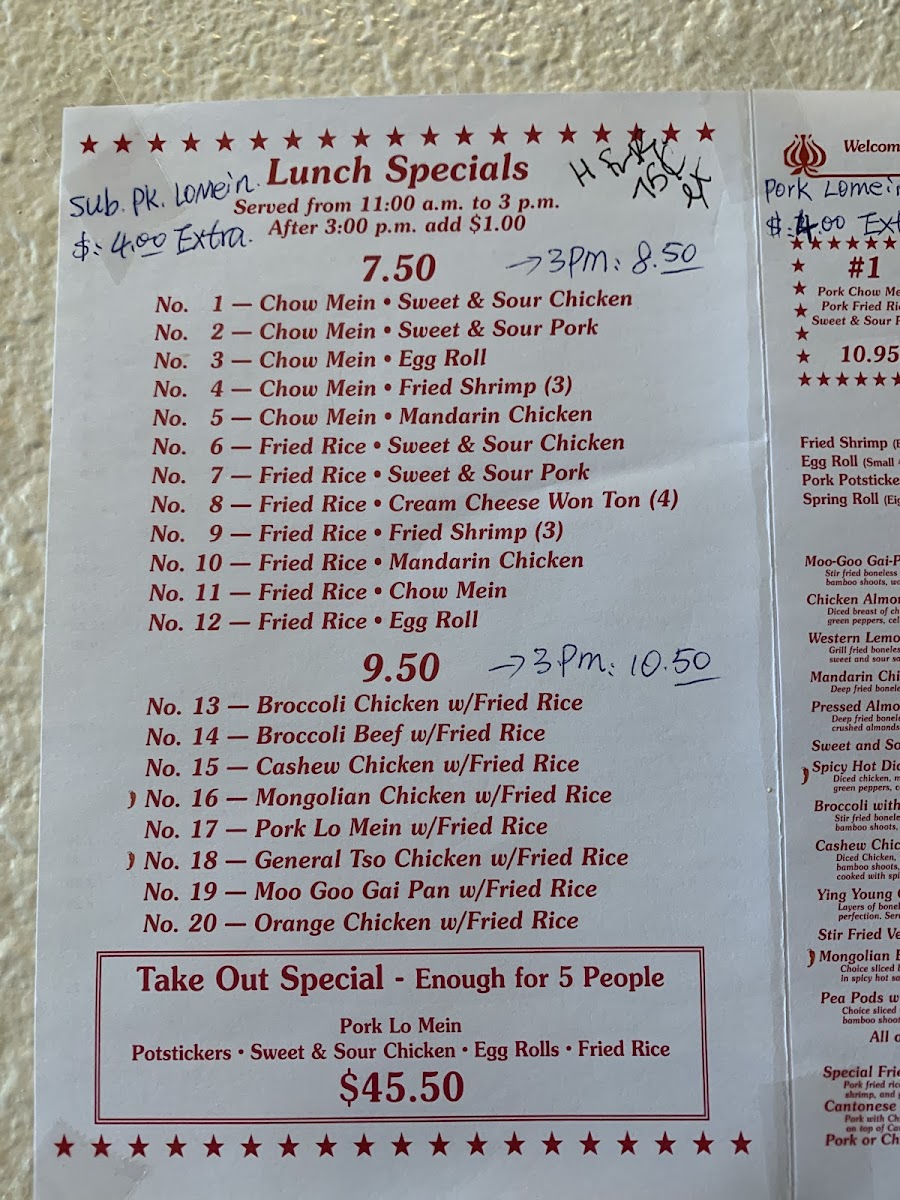 Lunch Specials
Sub. PK. Lomein.
$: 4.00 Extra.
Served from 11:00 a.m. to 3 p.m.
After 3:00 p.m. add $1.00
7.50 →3PM: 8.50
No. 1 — Chow Mein • Sweet & Sour Chicken
No. 2 — Chow Mein • Sweet & Sour Pork
No. 3 — Chow Mein • Egg Roll
No. 4 — Chow Mein • Fried Shrimp (3)
No. 5 — Chow Mein • Mandarin Chicken
No. 6 — Fried Rice • Sweet & Sour Chicken
No. 7 — Fried Rice • Sweet & Sour Pork
No. 8 — Fried Rice • Cream Cheese Won Ton (4)
No. 9 — Fried Rice • Fried Shrimp (3)
No. 10 — Fried Rice • Mandarin Chicken
No. 11 — Fried Rice • Chow Mein
No. 12 — Fried Rice • Egg Roll
9.50 →3.Pm: 10.50
No. 13 — Broccoli Chicken w/Fried Rice
No. 14 — Broccoli Beef w/Fried Rice
No. 15 — Cashew Chicken w/Fried Rice
No. 16 — Mongolian Chicken w/Fried Rice
No. 17 — Pork Lo Mein w/Fried Rice
No. 18 — General Tso Chicken w/Fried Rice
No. 19 — Moo Goo Gai Pan w/Fried Rice
No. 20 — Orange Chicken w/Fried Rice
Take Out Special - Enough for 5 People
Pork Lo Mein
Potstickers • Sweet & Sour Chicken • Egg Rolls • Fried Rice
$45.50
Pork
$ 4.00
#1
Pork Chow
Pork Fried
Sweet & Sour
10.95
Fried Shrimp
Egg Roll (Small
Pork
Spring Roll
Stir fried boneless
bamboo shoots,
Chicken
Diced breast of
green peppers,
Western
Grill fried
sweet and sour
Mandarin
Deep fried
Pressed
Deep fried
crushed almonds
Sweet and
Spicy Hot
Diced chicken,
green peppers,
Broccoli with
Stir fried
bamboo shoots,
Cashew
Diced Chicken,
bamboo shoots,
cooked with
Ying Young
Layers of
perfection.
Stir Fried
Mongolian
Choice sliced
in spicy hot
Pea Pods
Choice sliced
bamboo
All
Special
Pork fried
shrimp, and
Cantonese
Pork with
on top of
Pork or